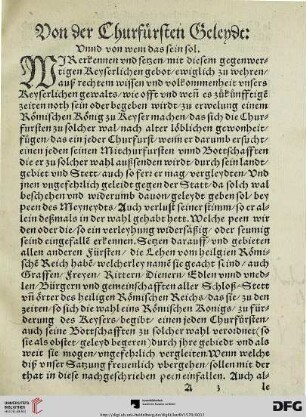 Von der Churfürsten Geleyde:
Vnnd von wem das sein sol.
WIR erkennen vnd setzen/ mit diesem gegenwer-
tigen Keyserlichen gebot/ ewiglich zu wehren/
auß rechtem wissen vnd volkommenheit vnsers
Keyserlichen gewalts/ wie offt vnd weil es zůkünfftige
zeiten noth sein oder begeben wirdt/ zu erwelung einem
Römischen König zu Keyser machen/ das sich die Chur-
fürsten zu solcher wal/ nach alter löblichen gewonheit/
fügen/ das ein jeder Churfürst/ wenn er darumb ersucht/
einen jeden seinen Mitchurfürsten vnd Bottschafften/
die er zu solcher wahl aussenden wirdt/ durch sein landt/
gebiet vnd Stett/ auch so fern er mag/ vergleydten/ Vnd
jnen vngefehrlich geleidt gegen der Statt/ da solch wal
beschehen/ vnd widerumb dauon geleydt geben sol/ bey
peen des Meyneyds/ Auch verlust seiner stimm/ so er al-
lein deßmals in der wahl gehabt hett. Welche peen wir
den oder die/ so ein verleyhung widersäßig/ oder seumig
seind eingefallē erkennen. Setzen darauff/ vnd gebieten
allen anderen Fürsten/ die Lehen vom heiligen Römi-
schē Reich habē/ welcherley namē sie geacht seind/ auch
Graffen/ Freyen/ Rittern/ Dienern/ Edlen vnnd vned-
len/ Bürgern vnd gemeinschafften aller Schloß/ Stett
vn̄ örter des heiligen Römischen Reichs/ das sie/ zu den
zeiten/ so sich die wahl eins Römischen Königs/ zu für-
derung des Keysers/ begibt/ einen jeden Churfürsten/
auch seine Bottschafften zu solcher wahl verordnet/ (so
sie als obster/ geleyd begeren) durch ihre gebiedt/ vnd als
weit sie mögen/ vngefehrlich vergleiten. Wenn welche
diß vnser Satzung freuenlich vbergehen/ sollen mit der
that in diese nachgeschrieben peen einfallen. Auch al-
A 3 le
UNIVERSITÄTS-
BIBLIOTHEK
HEIDELBERG
DFG